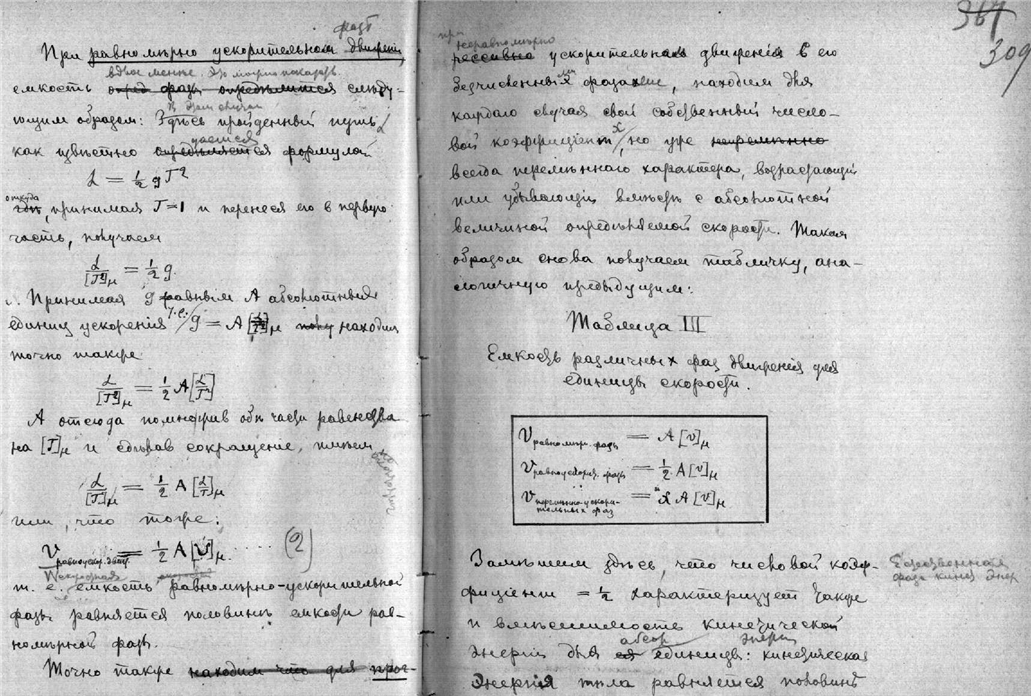 фазѣ
При равномѣрно ускорительном движенiи
вдвое менѣе. Это можно показать
емкость фазы опредѣляется слѣду-
ющим образом: Здѣсь пройденный путь L
в этом случаѣ
как извѣстно формулой
L = ½ g T²
откуда, принимая T=1 и перенеся его в первую
часть, получаем
L/[T²]μ = ½ g
Принимая g равным A абсолютным
единиц ускоренiя т.е. g = A [L/T²]μ находим
точно также
L/[T²]μ = ½ A [L/T²]
А отсюда помножив обѣ части равенства
на [T]μ и сдѣлав сокращенiе, имѣем
L/[T]μ = ½ A [L/T]μ
или, что тоже:
V равноускор. движ. = ½ A [V]μ ..... (2)
т. е. емкость равномѣрно-ускорительной
фазы равняется половинѣ емкости рав-
номѣрной фазы.
Точно также находим что для прог-
367
309
при неравномѣрно
рессивно ускорительном движенiя в его
безчисленных фазах, находим для
каждаго случая свой собственный число-
вой коэффицiент, но уже непремѣнно
всегда перемѣннаго характера, возрастающiй
или убывающiй вмѣстѣ с абсолютной
величиной опредѣляемой скорости. Таким
образом снова получаем табличку, ана-
логичную предыдущим:
Таблица III
Емкость различных фаз движенiя для
единицы скорости.
V равномѣр. фазы = A [v]μ
V равноускорит. фазы = ½ A [v]μ
V перемѣнно-ускори-тельных фаз = "L A [v]μ
Замѣтим здѣсь, что числовой коэф-
фицiент = ½ характеризует также
и вмѣстимость кинетической
энергiи для абсол. единицы: кинетическая
энергiя тѣла равняется половинѣ
Естественная
фаза кинет. энер.